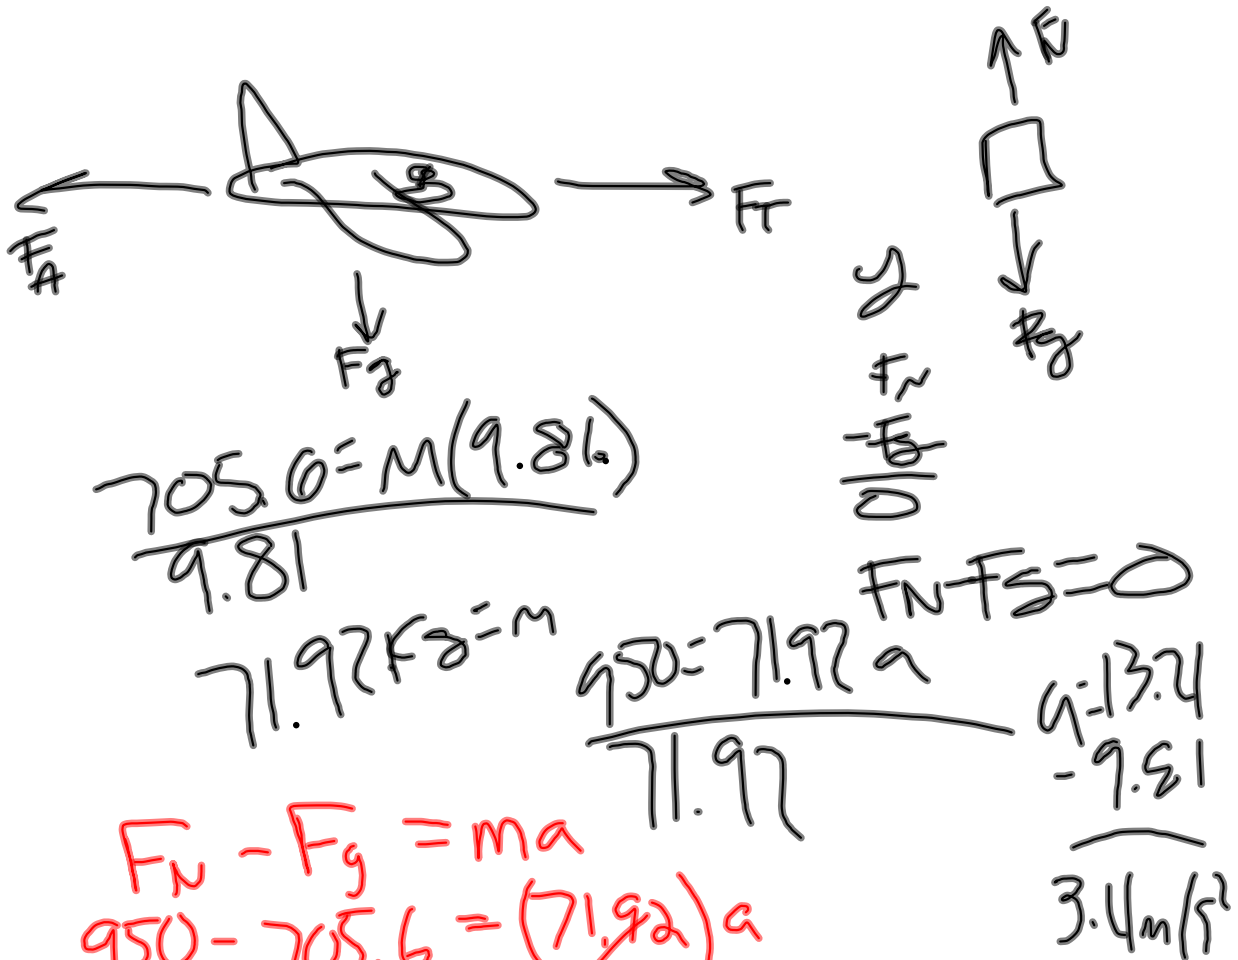 F_N
F_A
F_T
F_g
F_g
y
F_N
-F_g
0
705.6 = m(9.81)
9.81
F_N - F_g = 0
71.92 kg = m
950 = 71.92 a
71.92
a = 13.21
- 9.81
3.4 m/s²
F_N - F_g = ma
950 - 705.6 = (71.92) a